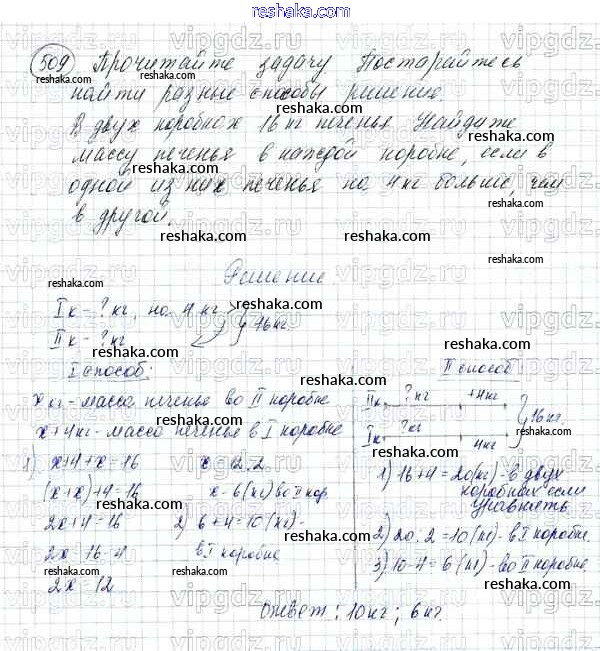 reshaka.com
509 Прочитайте задачу. Постарайтесь
найти разные способы решение.
В двух коробках 16 кг печенья. Найдите
массу печенья в каждой коробке, если в
одной из них печенья на 4 кг больше, чем
в другой.
Решение.
I к - ? кг, на 4 кг > } 16 кг.
II к - ? кг
I способ:
x кг - масса печенье во II коробке
x+4 кг - масса печенье в I коробке
1) x+4+x=16
(x+x)+4=16
2x+4=16
2x=16-4
2x=12
x=12:2
x=6(кг) во II кор.
2) 6+4=10(кг)-
в I коробке
II способ
IIк. ? кг +4кг
Iк. 4кг } 16 кг
1) 16+4=20(кг)-в двух
коробках если
уравнять
2) 20:2=10(кг)-в I коробке.
3) 10-4=6(кг)-во II коробке
Ответ: 10 кг; 6 кг.